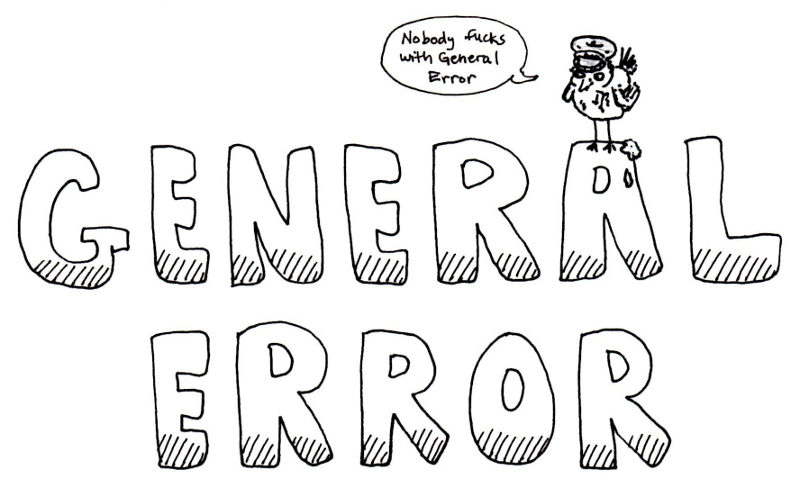 Nobody fucks
with General
Error
GENERAL
ERROR